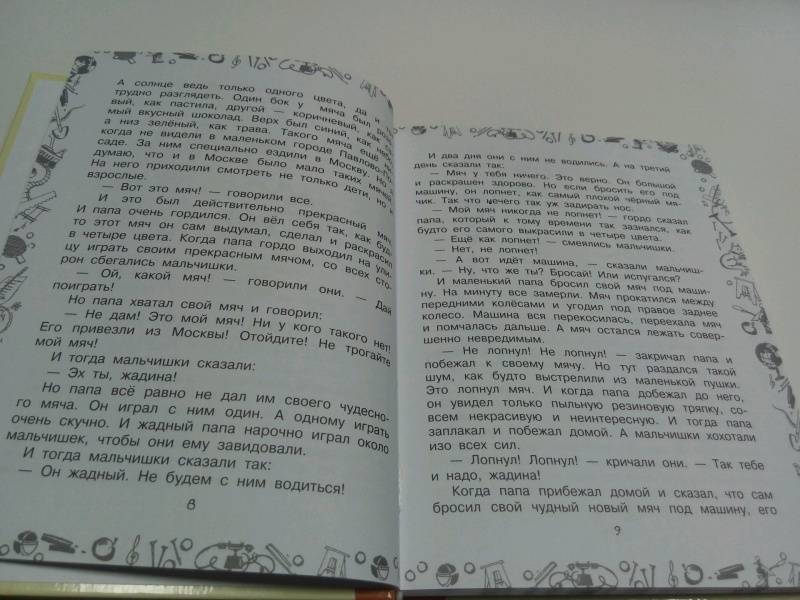 А солнце ведь только одного цвета, да и
трудно разглядеть. Один бок у мяча был розо
вый, как пастила, другой — коричневый, как са
мый вкусный шоколад. Верх был синий, как небо
а низ зелёный, как трава. Такого мяча ещё
когда не видели в маленьком городе Павлово-По
саде. За ним специально ездили в Москву. Но
думаю, что и в Москве было мало таких мячей
На него приходили смотреть не только дети, но и
взрослые.
— Вот это мяч! — говорили все.
И это был действительно прекрасный мяч
И папа очень гордился. Он вёл себя так, как буд
то этот мяч он сам выдумал, сделал и раскрасил
в четыре цвета. Когда папа гордо выходил на ули
цу играть своим прекрасным мячом, со всех сто-
рон сбегались мальчишки.
— Ой, какой мяч! — говорили они. — Дай
поиграть!
Но папа хватал свой мяч и говорил:
— Не дам! Это мой мяч! Ни у кого такого нет!
Его привезли из Москвы! Отойдите! Не трогайте
мой мяч!
И тогда мальчишки сказали:
— Эх ты, жадина!
Но папа всё равно не дал им своего чудесно-
го мяча. Он играл с ним один. А одному играть
очень скучно. И жадный папа нарочно играл около
мальчишек, чтобы они ему завидовали.
И тогда мальчишки сказали так:
— Он жадный. Не будем с ним водиться!
8
И два дня они с ним не водились. А на третий
день сказали так:
— Мяч у тебя ничего. Это верно. Он большой
и раскрашен здорово. Но если бросить его под
машину, он лопнет, как самый плохой чёрный мя-
чик. Так что нечего так уж задирать нос.
— Мой мяч никогда не лопнет! — гордо сказал
папа, который к тому времени так зазнался, как
будто его самого выкрасили в четыре цвета.
— Ещё как лопнет! — смеялись мальчишки.
— Нет, не лопнет!
— А вот идёт машина, — сказали мальчиш-
ки. — Ну, что же ты? Бросай! Или испугался?
И маленький папа бросил свой мяч под маши-
ну. На минуту все замерли. Мяч прокатился между
передними колёсами и угодил под правое заднее
колесо. Машина вся перекосилась, переехала мяч
и помчалась дальше. А мяч остался лежать совер-
шенно невредимым.
— Не лопнул! Не лопнул! — закричал папа и
побежал к своему мячу. Но тут раздался такой
шум, как будто выстрелили из маленькой пушки.
Это лопнул мяч. И когда папа добежал до него,
он увидел только пыльную резиновую тряпку, со-
всем некрасивую и неинтересную. И тогда папа
заплакал и побежал домой. А мальчишки хохотали
изо всех сил.
— Лопнул! Лопнул! — кричали они. — Так тебе
и надо, жадина!
Когда папа прибежал домой и сказал, что сам
бросил свой чудный новый мяч под машину, его
9